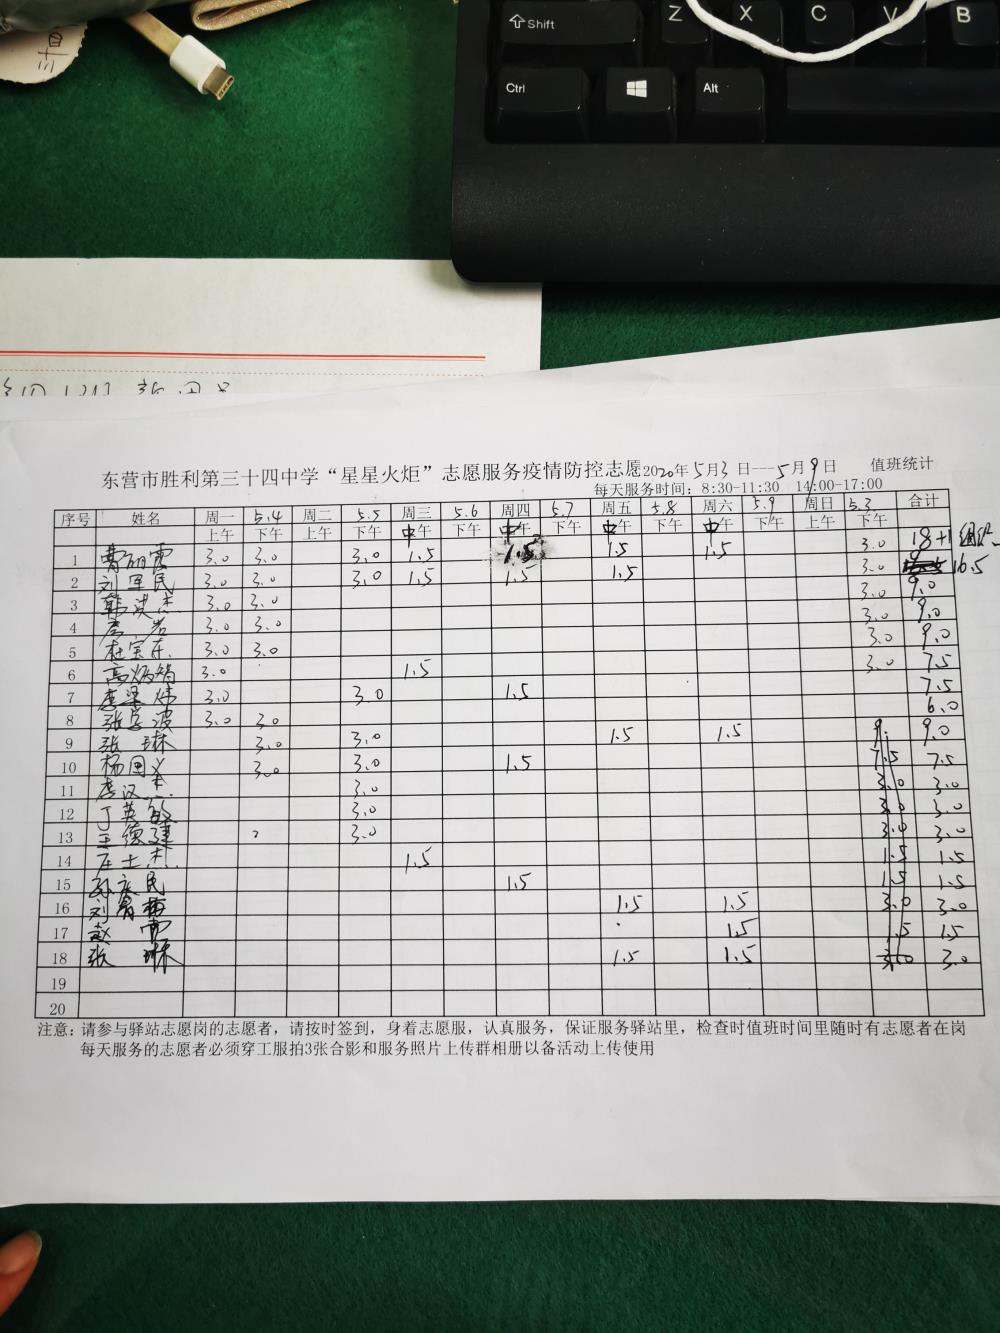 Shift Z X C V B
Ctrl Alt
三十四
东营市胜利第三十四中学“星星火炬”志愿服务疫情防控志愿2020年5月3日---5月9日 值班统计
每天服务时间：8:30-11:30 14:00-17:00
序号 姓名 周一 5.4 周二 5.5 周三 5.6 周四 5.7 周五 5.8 周六 5.9 周日 5.3 合计
上午 下午 上午 下午 中午 下午 中午 下午 中午 下午 中午 下午 上午 下午
1 曹丽霞 3.0 3.0 3.0 1.5 1.5 1.5 1.5 3.0 18+1
2 刘军民 3.0 3.0 3.0 1.5 1.5 1.5 3.0 16.5
3 韩洪杰 3.0 3.0 3.0 9.0
4 岩 3.0 3.0 3.0 9.0
5 杜宝东 3.0 3.0 3.0 9.0
6 高炳 3.0 1.5 3.0 7.5
7 李梁炜 3.0 3.0 1.5 7.5
8 张学波 3.0 3.0 6.0
9 张琳 3.0 3.0 1.5 1.5 9. 9.0
10 杨国义 3.0 3.0 1.5 7.5 7.5
11 李汉杰 3.0 3.0 3.0
12 丁英敏 3.0 3.0 3.0
13 王德建 3.0 3.0 3.0
14 庄士杰 1.5 1.5 1.5
15 孙庆民 1.5 1.5 1.5
16 刘 1.5 1.5 3.0 3.0
17 赵雷 1.5 1.5 1.5
18 张琳 1.5 1.5 3.0 3.0
19
20
注意：请参与驿站志愿岗的志愿者，请按时签到，身着志愿服，认真服务，保证服务驿站里，检查时值班时间里随时有志愿者在岗
每天服务的志愿者必须穿工服拍3张合影和服务照片上传群相册以备活动上传使用